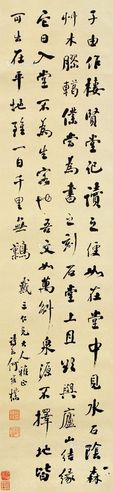 子由作棲賢堂記讀之便如在堂中見水石陰森
艸木膠轕僕當為書之刻石堂上且欲與廬山結緣
它日入堂不為生客也吾文如萬斛泉源不擇地皆
可出在平地雖一日千里無難
仁兄大人雅正
何維樸